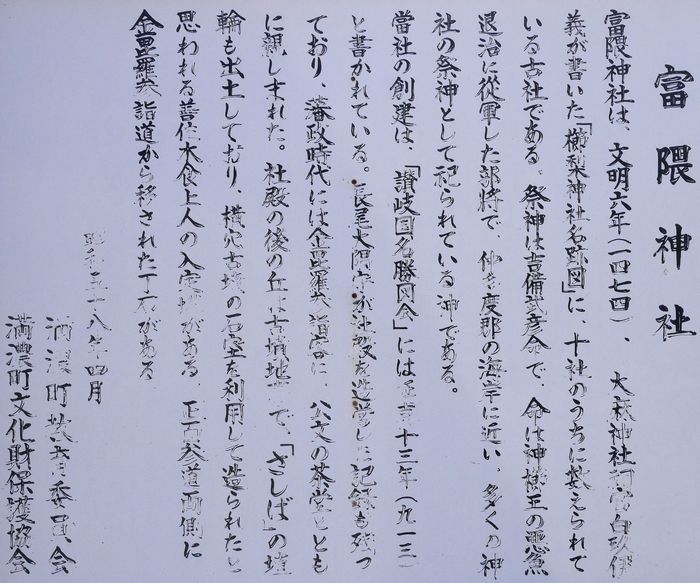 富隈神社
富隈神社は、文明六年(一四七四)、大麻神社祠官白玖伊
義が書いた「櫛梨神社名跡図」に、十社のうちに数えられて
いる古社である。祭神は吉備武彦命で、命は神櫛王の悪魚
退治に従軍した部将で、仲多度郡の海岸に近い、多くの神
社の祭神として祀られている神である。
當社の創建は、「讃岐国名勝図会」には延喜十三年(九一三)
と書かれている。長尾大隅守が社殿を造営した記録も残っ
ており、藩政時代には金毘羅参詣客に、公文の茶堂ととも
に親しまれた。社殿の後の丘は古墳地帯で、「さしば」の埴
輪も出土しており、横穴古墳の石室を利用して造られたと
思われる善住木食上人の入定塚がある。正面参道両側に
金毘羅参詣道から移された丁石がある
昭和五十八年四月
満濃町教育委員会
満濃町文化財保護協会